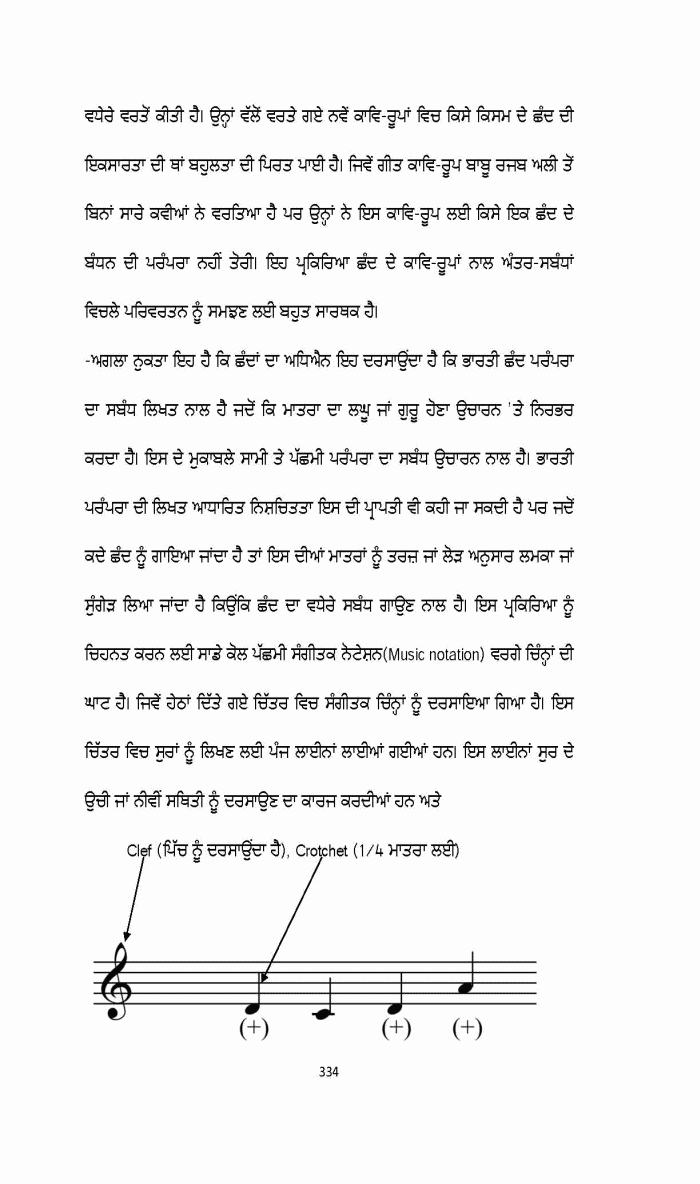 ਵਧੇਰੇ ਵਰਤੋਂ ਕੀਤੀ ਹੈ। ਉਨ੍ਹਾਂ ਵੱਲੋਂ ਵਰਤੇ ਗਏ ਨਵੇਂ ਕਾਵਿ-ਰੂਪਾਂ ਵਿਚ ਕਿਸੇ ਕਿਸਮ ਦੇ ਛੰਦ ਦੀ
ਇਕਸਾਰਤਾ ਦੀ ਥਾਂ ਬਹੁਲਤਾ ਦੀ ਪਿਰਤ ਪਾਈ ਹੈ। ਜਿਵੇਂ ਗੀਤ ਕਾਵਿ-ਰੂਪ ਬਾਬੂ ਰਜਬ ਅਲੀ ਤੋਂ
ਬਿਨਾਂ ਸਾਰੇ ਕਵੀਆਂ ਨੇ ਵਰਤਿਆ ਹੈ ਪਰ ਉਨ੍ਹਾਂ ਨੇ ਇਸ ਕਾਵਿ-ਰੂਪ ਲਈ ਕਿਸੇ ਇਕ ਛੰਦ ਦੇ
ਬੰਧਨ ਦੀ ਪਰੰਪਰਾ ਨਹੀਂ ਤੋਰੀ। ਇਹ ਪ੍ਰਕਿਰਿਆ ਛੰਦ ਦੇ ਕਾਵਿ-ਰੂਪਾਂ ਨਾਲ ਅੰਤਰ-ਸਬੰਧਾਂ
ਵਿਚਲੇ ਪਰਿਵਰਤਨ ਨੂੰ ਸਮਝਣ ਲਈ ਬਹੁਤ ਸਾਰਥਕ ਹੈ।
-ਅਗਲਾ ਨੁਕਤਾ ਇਹ ਹੈ ਕਿ ਛੰਦਾਂ ਦਾ ਅਧਿਐਨ ਇਹ ਦਰਸਾਉਂਦਾ ਹੈ ਕਿ ਭਾਰਤੀ ਛੰਦ ਪਰੰਪਰਾ
ਦਾ ਸਬੰਧ ਲਿਖਤ ਨਾਲ ਹੈ ਜਦੋਂ ਕਿ ਮਾਤਰਾ ਦਾ ਲਘੂ ਜਾਂ ਗੁਰੂ ਹੋਣਾ ਉਚਾਰਨ 'ਤੇ ਨਿਰਭਰ
ਕਰਦਾ ਹੈ। ਇਸ ਦੇ ਮੁਕਾਬਲੇ ਸਾਮੀ ਤੇ ਪੱਛਮੀ ਪਰੰਪਰਾ ਦਾ ਸਬੰਧ ਉਚਾਰਨ ਨਾਲ ਹੈ। ਭਾਰਤੀ
ਪਰੰਪਰਾ ਦੀ ਲਿਖਤ ਆਧਾਰਿਤ ਨਿਸ਼ਚਿਤਤਾ ਇਸ ਦੀ ਪ੍ਰਾਪਤੀ ਵੀ ਕਹੀ ਜਾ ਸਕਦੀ ਹੈ ਪਰ ਜਦੋਂ
ਕਦੇ ਛੰਦ ਨੂੰ ਗਾਇਆ ਜਾਂਦਾ ਹੈ ਤਾਂ ਇਸ ਦੀਆਂ ਮਾਤਰਾਂ ਨੂੰ ਤਰਜ਼ ਜਾਂ ਲੋੜ ਅਨੁਸਾਰ ਲਮਕਾ ਜਾਂ
ਸੁੰਗੇੜ ਲਿਆ ਜਾਂਦਾ ਹੈ ਕਿਉਂਕਿ ਛੰਦ ਦਾ ਵਧੇਰੇ ਸਬੰਧ ਗਾਉਣ ਨਾਲ ਹੈ। ਇਸ ਪ੍ਰਕਿਰਿਆ ਨੂੰ
ਚਿਹਨਤ ਕਰਨ ਲਈ ਸਾਡੇ ਕੋਲ ਪੱਛਮੀ ਸੰਗੀਤਕ ਨੋਟੇਸ਼ਨ(Music notation) ਵਰਗੇ ਚਿੰਨ੍ਹਾਂ ਦੀ
ਘਾਟ ਹੈ। ਜਿਵੇਂ ਹੇਠਾਂ ਦਿੱਤੇ ਗਏ ਚਿੱਤਰ ਵਿਚ ਸੰਗੀਤਕ ਚਿੰਨ੍ਹਾਂ ਨੂੰ ਦਰਸਾਇਆ ਗਿਆ ਹੈ। ਇਸ
ਚਿੱਤਰ ਵਿਚ ਸੁਰਾਂ ਨੂੰ ਲਿਖਣ ਲਈ ਪੰਜ ਲਾਈਨਾਂ ਲਾਈਆਂ ਗਈਆਂ ਹਨ। ਇਸ ਲਾਈਨਾਂ ਸੁਰ ਦੇ
ਉਚੀ ਜਾਂ ਨੀਵੀਂ ਸਥਿਤੀ ਨੂੰ ਦਰਸਾਉਣ ਦਾ ਕਾਰਜ ਕਰਦੀਆਂ ਹਨ ਅਤੇ
Clef (ਪਿੱਚ ਨੂੰ ਦਰਸਾਉਂਦਾ ਹੈ), Crotchet (1/4 ਮਾਤਰਾ ਲਈ)
(+) (+) (+)
334